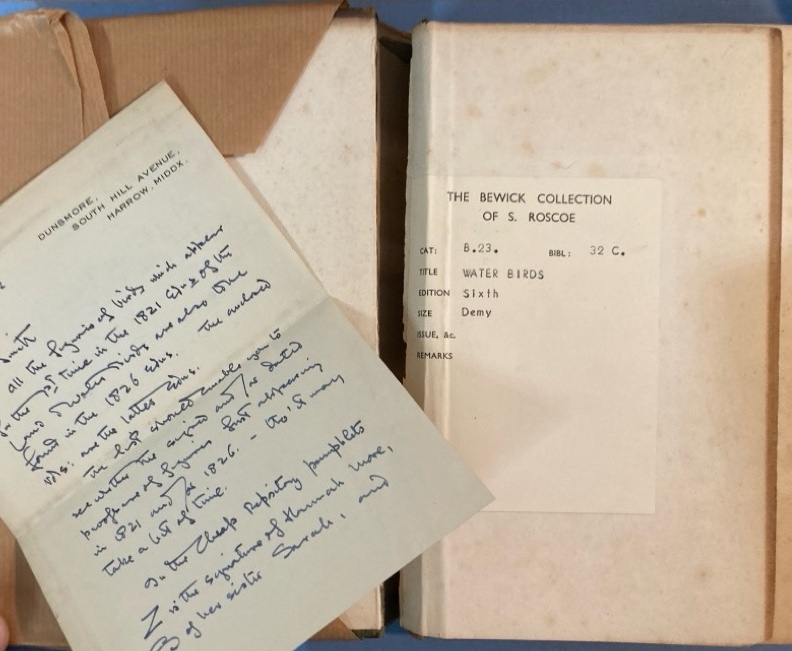 DUNSMORE,
SOUTH HILL AVENUE,
HARROW, MIDDX.
Smith
all the figures of birds which appear
for the 1st time in the 1821 Edns of the
Land & Water Birds are also to be
found in the 1826 Edns. The enclosed
vols: are the latter Edns.
the list should enable you to
see whether the signed and/or dated
proofs are of figures first appearing
in 1821 and/or 1826. - tho' it may
take a bit of time.
In the Cheap Repository pamphlets
Z is the signature of Hannah More,
of her sister Sarah, and
THE BEWICK COLLECTION
OF S. ROSCOE
CAT: B.23. BIBL: 32 C.
TITLE WATER BIRDS
EDITION Sixth
SIZE Demy
ISSUE, &c.
REMARKS